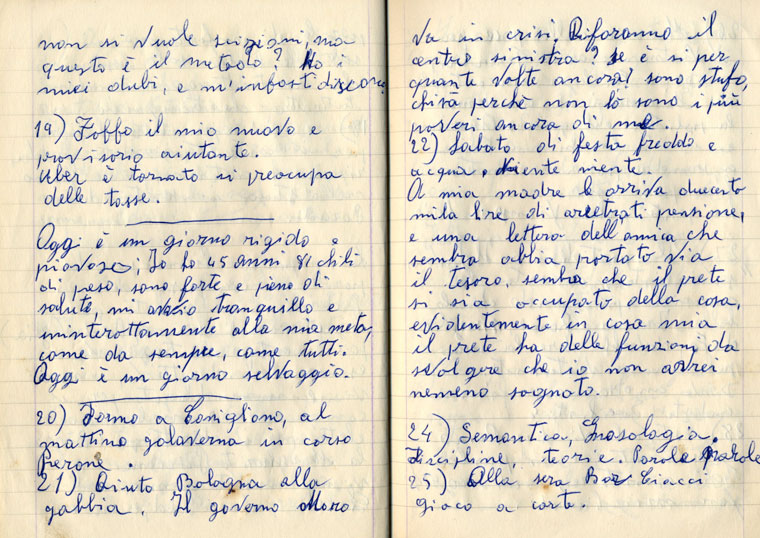 non si vuole scizioni, ma
questo è il metodo? Ho i
miei dubi, e m'infastidiscono
19) Zoffo il mio nuovo e
provisorio aiutante.
Uber è tornato si preocupa
delle tasse.
Oggi è un giorno rigido e
piovoso; Io ho 45 anni 81 chili
di peso, sono forte e pieno di
salute, mi avvio tranquillo e
ininterottamente alla mia meta,
come da sempre, come tutti.
Oggi è un giorno selvaggio.
20) Fermo a Conigliono, al
mattino galaverna in corso
Perone.
21) Aiuto Bologna alla
gabbia. Il governo Moro
va in crisi. Riforanno il
centro sinistra? Se è si per
quante volte ancora? sono stufo,
chisa perchè non lo sono i più
poveri ancora di me.
22) Sabato di festa freddo e
acqua, niente niente.
A mia madre le arriva duecento
mila lire di arretrati pensione,
e una lettera dell'amica che
sembra abbia portato via
il tesoro, sembra che il prete
si sia occupato della cosa,
evidentemente in cosa mia
il prete ha delle funzioni da
svolgere che io non avrei
nemeno sognato.
24) Semantica, Gnosologia.
Discipline, teorie. Parole parole
25) Alla sera Bar Ciacci
gioco a carte.